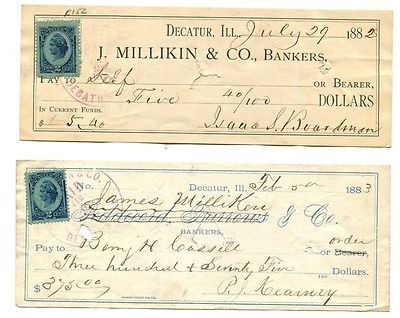 R152
DECATUR, ILL., July 29 1882
J. MILLIKIN & CO., BANKERS.
PAY TO Self OR BEARER,
Five 40/100 DOLLARS
IN CURRENT FUNDS.
$ 5.40 Isaac S. Boardman
& CO.
No. Decatur, Ill. Feb 5th 1883
James Millikin
Peddecord, Burrows & Co.
BANKERS,
order
Pay to Berry H Cassell or Bearer,
Three hundred & Seventy Five Dollars.
$375.00 P. J. Kearney